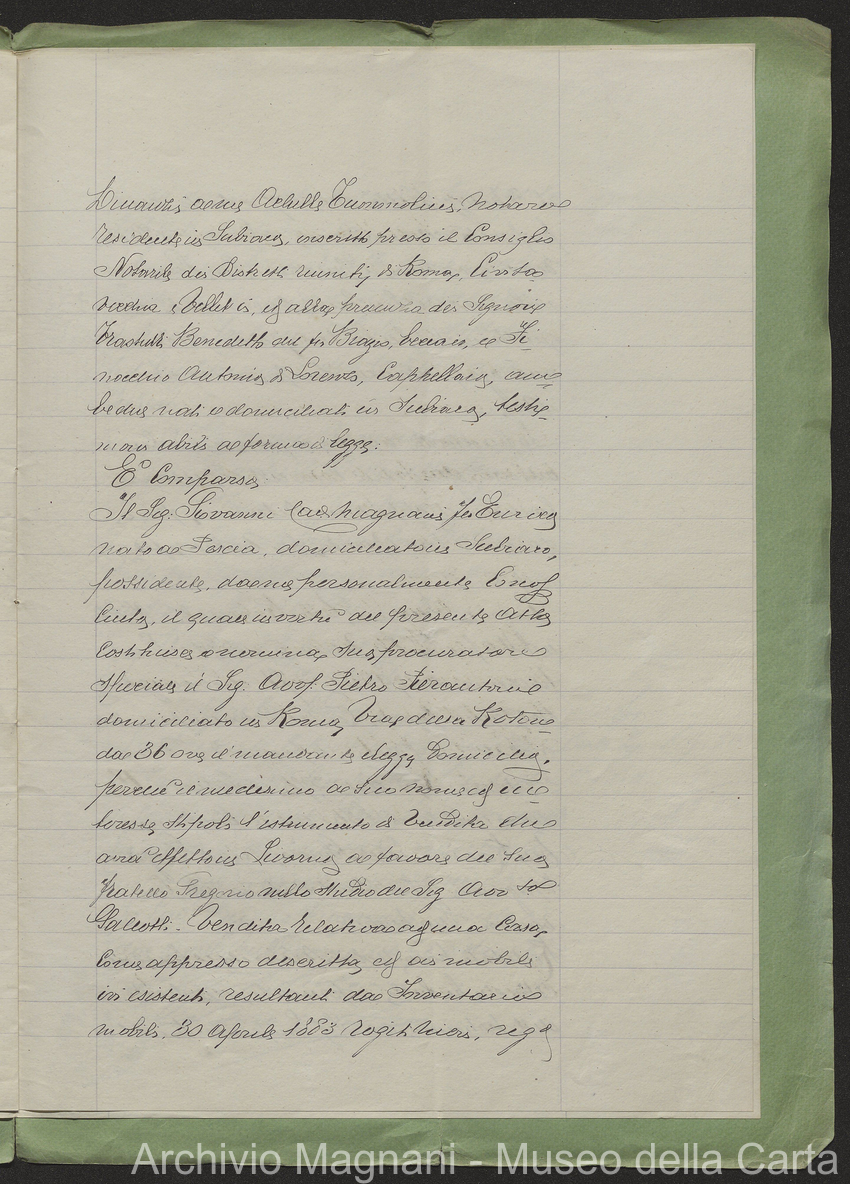 Dinanzi a me Achille Tummolini, Notaro
residente in Subiaco, inscritto presso il Consiglio
Notarile dei Distretti riuniti di Roma, Civita
vecchia e Velletri, ed alla presenza dei Signori
Trastulli Benedetto del fu Biagio, beccaio, e
nocchio Antonio di Lorenzo, Cappellaio, am=
bedue nati e domiciliati in Subiaco, testi=
moni abili a forma di legge:
È Comparso
Il Sig: Giovanni Magnani fu Enrico
nato a Pescia, domiciliato in Subiaco,
possidente, da me personalmente Conos
ciuto, il quale in virtù del presente Atto
Costituisce e nomina suo procuratore
speciale il Sig: Avv. Pietro Pierantoni
domiciliato in Roma, Via della Roton=
da 36 ove il mandante elegge Domicilio,
perché il medesimo a suo nome ed in=
teresse stipoli l'istrumento di Vendita che
avrà effetto in Livorno a favore del suo
fratello nello Studio del Sig Avv
Galeotti. Vendita relativa ad una Casa,
Come appresso descritta, ed ai mobili
ivi esistenti, resultanti da Inventario
mobili, 30 Aprile 1883 rogiti Nieri, reg
Archivio Magnani - Museo della Carta